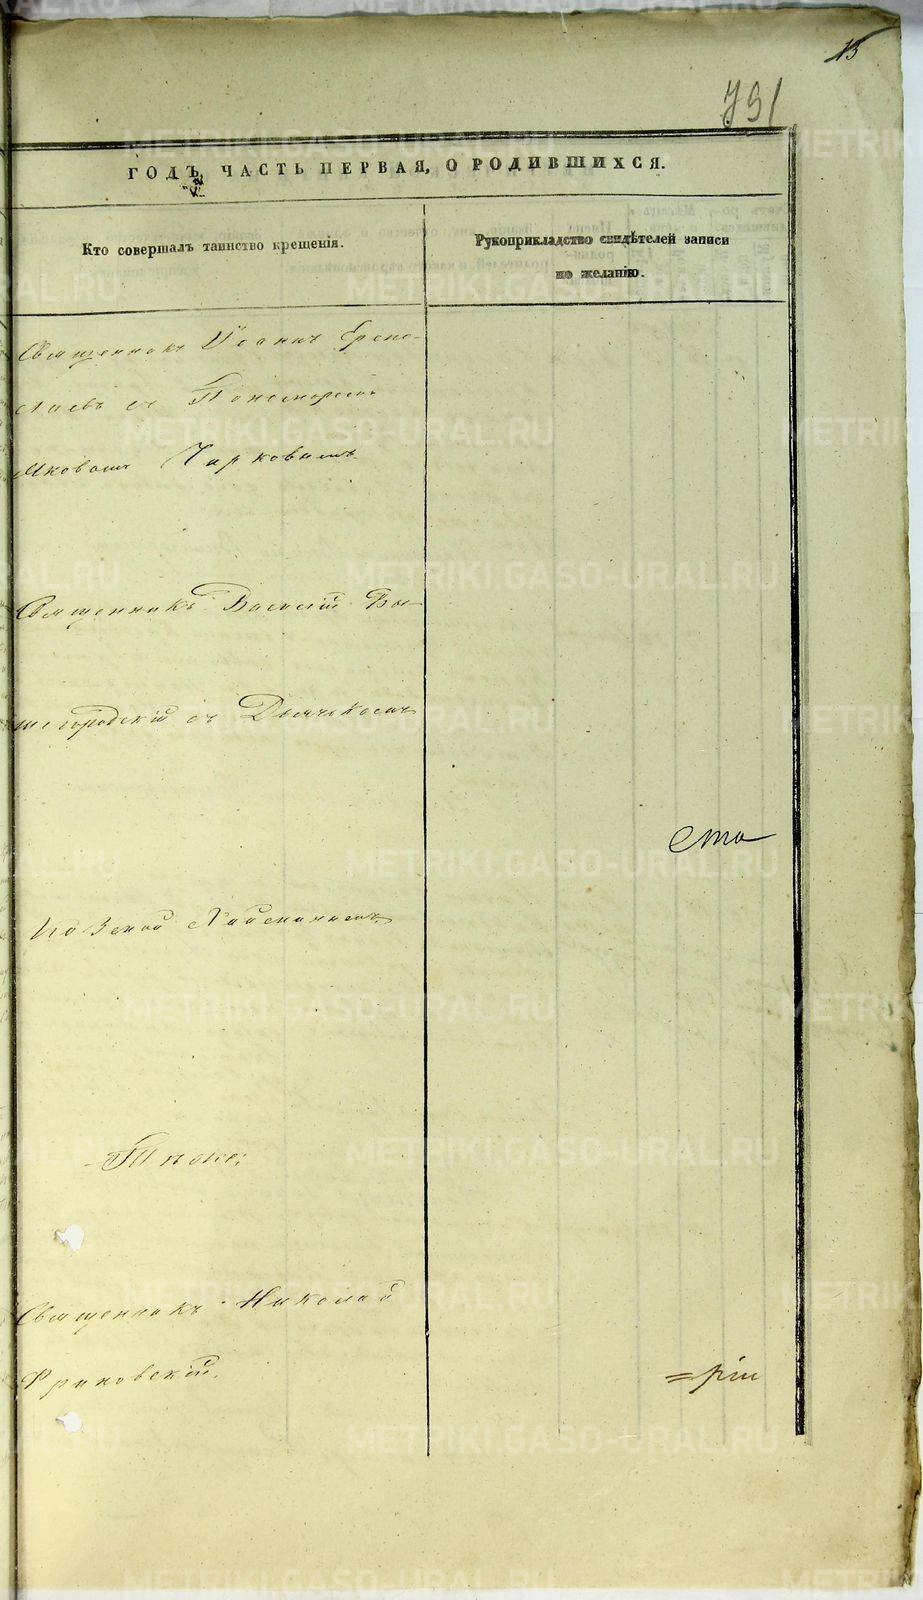 13
791
ГОДЪ, ЧАСТЬ ПЕРВАЯ, О РОДИВШИХСЯ.
Кто совершалъ таинство крещенія.
Рукоприкладство свидѣтелей записи
по желанію.
Священникъ Іоаннъ
съ Пономаремъ
Яковомъ Чирковымъ
Священникъ Василій Вы-
шегородскій съ Дьячкомъ
Тѣ же:
Священникъ Николай
=ріи
METRIKI.GASO-URAL.RU